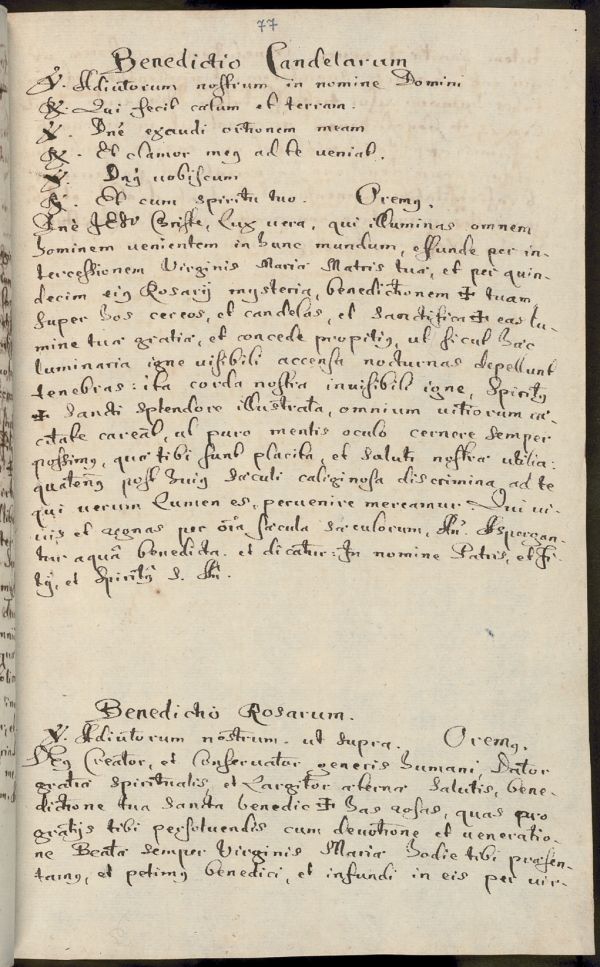 77
Benedictio Candelarum
℣. Adiutorum nostrum in nomine Domini
℟. Qui fecit cælum et terram.
℣. Dne exaudi ortionem meam
℟. Et clamor meus ad te veniat.
℣. Dnus vobiscum
℟. Et cum spiritu tuo. Oremus.
Dne IESV Christe, Lux vera, qui illuminas omnem
hominem venientem in hunc mundum, effunde per in-
tercessionem Virginis Mariæ Matris tuæ, et per quin-
decim eius Rosarij mysteria, benedictionem ✠ tuam
super hos cereos, et candelas, et sanctifica ✠ eas lu-
mine tuæ gratiæ, et concede propitius, ut sicut hæc
luminaria igne visibili accensa nocturnas depellunt
tenebras: ita corda nostra invisibili igne, Spiritus
✠ Sancti splendore illustrata, omnium vitiorum cæ-
citate careat, ut puro mentis oculo cernere semper
possimus, quæ tibi sunt placita, et saluti nostræ utilia:
quatenus post huius sæculi caliginosa discrimina, ad te
qui verum Lumen es. pervenire mereamur. Qui vi-
vis et regnas per oia sæcula sæculorum, An. Aspergan-
tur aqua benedicta. et dicatur: In nomine Patris, et Fi-
lij, et Spiritus S. An.
Benedictio Rosarum.
℣. Adiutorum nostrum. ut supra. Oremus,
Deus Creator, et Conservator generis humani, Dator
gratiæ spiritualis, et Largitor æternæ salutis, bene-
dictione tua sancta benedic ✠ has rosas, quas pro
gratijs tibi persolvendis cum devotione et veneratio-
ne Beatæ semper Virginis Mariæ hodie tibi præsen-
tamus, et petimus benedici, et infundi in eis per vir-